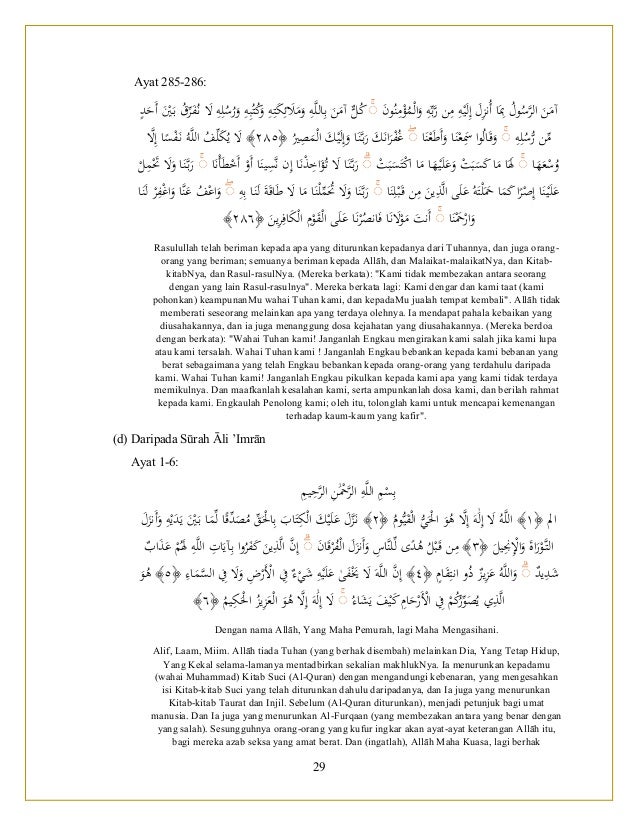 Ayat 285-286:
آمَنَ الرَّسُولُ بِمَا أُنزِلَ إِلَيْهِ مِن رَّبِّهِ وَالْمُؤْمِنُونَ ۚ كُلٌّ آمَنَ بِاللَّهِ وَمَلَائِكَتِهِ وَكُتُبِهِ وَرُسُلِهِ لَا نُفَرِّقُ بَيْنَ أَحَدٍ
مِّن رُّسُلِهِ ۚ وَقَالُوا سَمِعْنَا وَأَطَعْنَا ۖ غُفْرَانَكَ رَبَّنَا وَإِلَيْكَ الْمَصِيرُ ﴿٢٨٥﴾ لَا يُكَلِّفُ اللَّهُ نَفْسًا إِلَّا
وُسْعَهَا ۚ لَهَا مَا كَسَبَتْ وَعَلَيْهَا مَا اكْتَسَبَتْ ۗ رَبَّنَا لَا تُؤَاخِذْنَا إِن نَّسِينَا أَوْ أَخْطَأْنَا ۚ رَبَّنَا وَلَا تَحْمِلْ
عَلَيْنَا إِصْرًا كَمَا حَمَلْتَهُ عَلَى الَّذِينَ مِن قَبْلِنَا ۚ رَبَّنَا وَلَا تُحَمِّلْنَا مَا لَا طَاقَةَ لَنَا بِهِ ۖ وَاعْفُ عَنَّا وَاغْفِرْ لَنَا
وَارْحَمْنَا ۚ أَنتَ مَوْلَانَا فَانصُرْنَا عَلَى الْقَوْمِ الْكَافِرِينَ ﴿٢٨٦﴾
Rasulullah telah beriman kepada apa yang diturunkan kepadanya dari Tuhannya, dan juga orang-
orang yang beriman; semuanya beriman kepada Allāh, dan Malaikat-malaikatNya, dan Kitab-
kitabNya, dan Rasul-rasulNya. (Mereka berkata): "Kami tidak membezakan antara seorang
dengan yang lain Rasul-rasulnya". Mereka berkata lagi: Kami dengar dan kami taat (kami
pohonkan) keampunanMu wahai Tuhan kami, dan kepadaMu jualah tempat kembali". Allāh tidak
memberati seseorang melainkan apa yang terdaya olehnya. Ia mendapat pahala kebaikan yang
diusahakannya, dan ia juga menanggung dosa kejahatan yang diusahakannya. (Mereka berdoa
dengan berkata): "Wahai Tuhan kami! Janganlah Engkau mengirakan kami salah jika kami lupa
atau kami tersalah. Wahai Tuhan kami ! Janganlah Engkau bebankan kepada kami bebanan yang
berat sebagaimana yang telah Engkau bebankan kepada orang-orang yang terdahulu daripada
kami. Wahai Tuhan kami! Janganlah Engkau pikulkan kepada kami apa yang kami tidak terdaya
memikulnya. Dan maafkanlah kesalahan kami, serta ampunkanlah dosa kami, dan berilah rahmat
kepada kami. Engkaulah Penolong kami; oleh itu, tolonglah kami untuk mencapai kemenangan
terhadap kaum-kaum yang kafir".
(d) Daripada Sūrah Āli ’Imrān
Ayat 1-6:
بِسْمِ اللَّهِ الرَّحْمَٰنِ الرَّحِيمِ
الم ﴿١﴾ اللَّهُ لَا إِلَٰهَ إِلَّا هُوَ الْحَيُّ الْقَيُّومُ ﴿٢﴾ نَزَّلَ عَلَيْكَ الْكِتَابَ بِالْحَقِّ مُصَدِّقًا لِّمَا بَيْنَ يَدَيْهِ وَأَنزَلَ
التَّوْرَاةَ وَالْإِنجِيلَ ﴿٣﴾ مِن قَبْلُ هُدًى لِّلنَّاسِ وَأَنزَلَ الْفُرْقَانَ ۗ إِنَّ الَّذِينَ كَفَرُوا بِآيَاتِ اللَّهِ لَهُمْ عَذَابٌ
شَدِيدٌ ۗ وَاللَّهُ عَزِيزٌ ذُو انتِقَامٍ ﴿٤﴾ إِنَّ اللَّهَ لَا يَخْفَىٰ عَلَيْهِ شَيْءٌ فِي الْأَرْضِ وَلَا فِي السَّمَاءِ ﴿٥﴾ هُوَ
الَّذِي يُصَوِّرُكُمْ فِي الْأَرْحَامِ كَيْفَ يَشَاءُ ۚ لَا إِلَٰهَ إِلَّا هُوَ الْعَزِيزُ الْحَكِيمُ ﴿٦﴾
Dengan nama Allāh, Yang Maha Pemurah, lagi Maha Mengasihani.
Alif, Laam, Miim. Allāh tiada Tuhan (yang berhak disembah) melainkan Dia, Yang Tetap Hidup,
Yang Kekal selama-lamanya mentadbirkan sekalian makhlukNya. Ia menurunkan kepadamu
(wahai Muhammad) Kitab Suci (Al-Quran) dengan mengandungi kebenaran, yang mengesahkan
isi Kitab-kitab Suci yang telah diturunkan dahulu daripadanya, dan Ia juga yang menurunkan
Kitab-kitab Taurat dan Injil. Sebelum (Al-Quran diturunkan), menjadi petunjuk bagi umat
manusia. Dan Ia juga yang menurunkan Al-Furqaan (yang membezakan antara yang benar dengan
yang salah). Sesungguhnya orang-orang yang kufur ingkar akan ayat-ayat keterangan Allāh itu,
bagi mereka azab seksa yang amat berat. Dan (ingatlah), Allāh Maha Kuasa, lagi berhak
29